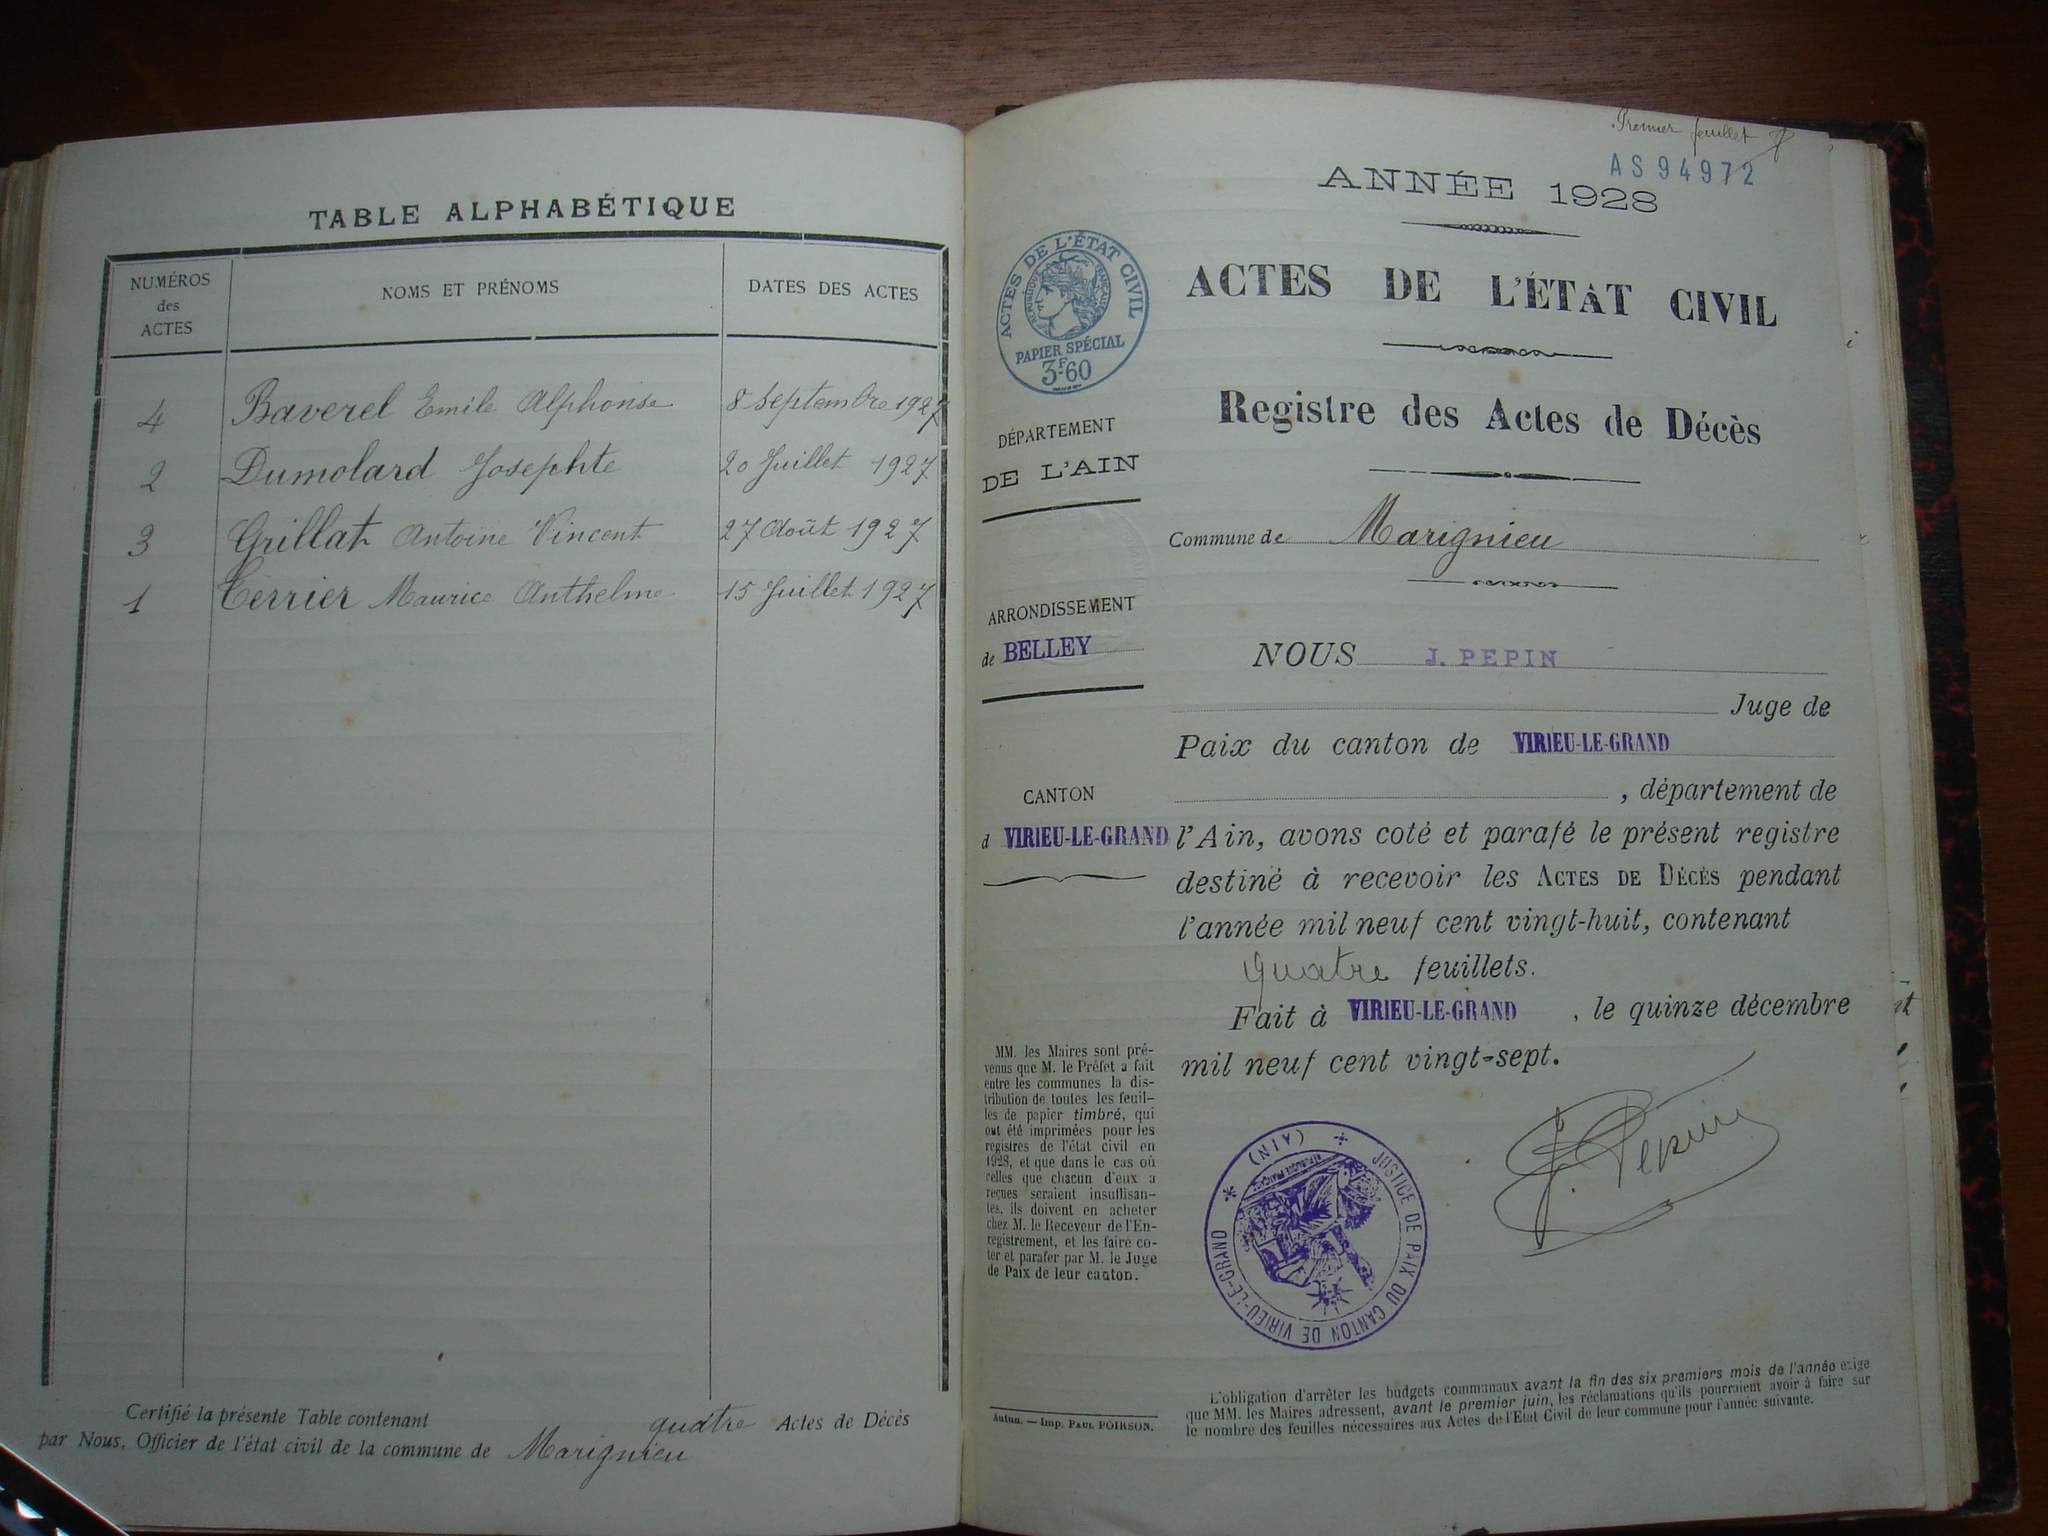 TABLE ALPHABÉTIQUE
NUMÉROS
des
ACTES
NOMS ET PRÉNOMS
DATES DES ACTES
4 Baverel Emile Alphonse 8 Septembre 1927
2 Dumolard Josephte 20 Juillet 1927
3 Grillat Antoine Vincent 27 Août 1927
1 Terrier Maurice Anthelme 15 Juillet 1927
Certifié la présente Table contenant quatre Actes de Décès
par Nous, Officier de l'état civil de la commune de Marignieu
Premier feuillet
AS94972
ANNÉE 1928
ACTES DE L'ÉTAT CIVIL
RÉPUBLIQUE FRANÇAISE
PAPIER SPÉCIAL
3F60
ACTES DE L'ÉTAT CIVIL
Registre des Actes de Décès
DÉPARTEMENT
DE L'AIN
ARRONDISSEMENT
de BELLEY
CANTON
d VIRIEU-LE-GRAND
Commune de Marignieu
NOUS J. PEPIN
Juge de
Paix du canton de VIRIEU-LE-GRAND
, département de
l'Ain, avons coté et parafé le présent registre
destiné à recevoir les ACTES DE DÉCÈS pendant
l'année mil neuf cent vingt-huit, contenant
quatre feuillets.
Fait à VIRIEU-LE-GRAND , le quinze décembre
mil neuf cent vingt-sept.
J. Pepin
MM. les Maires sont pré-
venus que M. le Préfet a fait
entre les communes la dis-
tribution de toutes les feuil-
les de papier timbré, qui
ont été imprimées pour les
registres de l'état civil en
1928, et que dans le cas où
celles que chacun d'eux a
reçues seraient insuffisan-
tes, ils doivent en acheter
chez M. le Receveur de l'En-
registrement, et les faire co-
ter et parafer par M. le Juge
de Paix de leur canton.
JUSTICE DE PAIX DU CANTON DE VIRIEU-LE-GRAND
(AIN)
RÉPUBLIQUE FRANÇAISE
Autun. — Imp. PAUL POIRSON.
L'obligation d'arrêter les budgets communaux avant la fin des six premiers mois de l'année exige
que MM. les Maires adressent, avant le premier juin, les réclamations qu'ils pourraient avoir à faire sur
le nombre des feuilles nécessaires aux Actes de l'Etat Civil de leur commune pour l'année suivante.